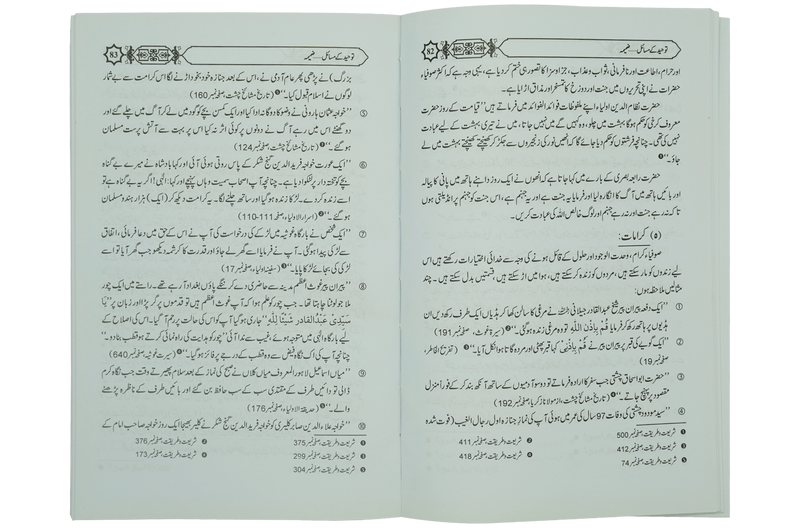 82
توحید کے مسائل ۔ ضمیمہ
اور حرام، اطاعت اور نافرمانی، ثواب و عذاب، جزا و سزا کا تصور ہی ختم کر دیا ہے، یہی وجہ ہے کہ اکثر صوفیاء
حضرات نے اپنی تحریروں میں جنت اور دوزخ کا تمسخر اور مذاق اڑایا ہے۔
حضرت نظام الدین اولیاء اپنے ملفوظات فوائد الفوائد میں فرماتے ہیں ’’قیامت کے روز حضرت
معروف کرخی کو حکم ہوگا بہشت میں چلو، وہ کہیں گے میں نہیں جاتا، میں نے تیری بہشت کے لیے عبادت
نہیں کی تھی۔ چنانچہ فرشتوں کو حکم دیا جائے گا کہ انہیں نور کی زنجیروں سے جکڑ کر کھینچتے کھینچتے بہشت میں لے
جاؤ۔
حضرت رابعہ بصری کے بارے میں کہا جاتا ہے کہ انھوں نے ایک روز داہنے ہاتھ میں پانی کا پیالہ
اور بائیں ہاتھ میں آگ کا انگارہ لیا اور فرمایا یہ جنت ہے اور یہ جہنم ہے، اس جنت کو جہنم پر انڈیلتی ہوں
تا کہ نہ رہے جنت اور نہ رہے جہنم اور لوگ خالص اللہ کی عبادت کریں۔
(۵) کرامات:
صوفیاء کرام، وحدت الوجود اور حلول کے قائل ہونے کی وجہ سے خدائی اختیارات رکھتے ہیں اس
لیے زندوں کو مار سکتے ہیں، مردوں کو زندہ کر سکتے ہیں، ہوا میں اڑ سکتے ہیں، قسمتیں بدل سکتے ہیں۔ چند
مثالیں ملاحظہ ہوں:
① ’’ایک دفعہ پیران پیر شیخ عبدالقادر جیلانی نے مرغی کا سالن کھا کر ہڈیاں ایک طرف رکھ دیں ان
ہڈیوں پر ہاتھ رکھ کر فرمایا قُمْ بِاِذْنِ اللّٰهِ تو وہ مرغی زندہ ہو گئی۔‘‘ (سیرت غوث، صفحہ نمبر 191)
② ’’ایک گویے کی قبر پر پیران پیر نے قُمْ بِاِذْنِیْ کہا قبر پھٹی اور مردہ گاتا ہوا نکل آیا۔‘‘ (تفریح الخاطر،
صفحہ نمبر 19)
③ ’’حضرت ابو اسحاق چشتی جب سفر کا ارادہ فرماتے تو دو سو آدمیوں کے ساتھ آنکھ بند کر کے فوراً منزل
مقصود پر پہنچ جاتے۔‘‘ (تاریخ مشائخ چشت، از مولانا زکریا، صفحہ نمبر 192)
④ ’’سید مودود چشتی کی وفات 97 سال کی عمر میں ہوئی آپ کی نماز جنازہ اول رجال الغیب (فوت شدہ
شریعت و طریقت، صفحہ نمبر 500
شریعت و طریقت، صفحہ نمبر 411
شریعت و طریقت، صفحہ نمبر 412
شریعت و طریقت، صفحہ نمبر 418
شریعت و طریقت، صفحہ نمبر 74
83
توحید کے مسائل ۔ ضمیمہ
بزرگ) نے پڑھی پھر عام آدمی نے، اس کے بعد جنازہ خود بخود اڑنے لگا اس کرامت سے بے شمار
لوگوں نے اسلام قبول کیا۔‘‘ (تاریخ مشائخ چشت، صفحہ نمبر 160)
⑤ ’’خواجہ عثمان ہارونی نے وضو کا دوگانہ ادا کیا اور ایک کمسن بچے کو گود میں لے کر آگ میں چلے گئے اور
دو گھنٹے اس میں رہے آگ نے دونوں پر کوئی اثر نہ کیا اس پر بہت سے آتش پرست مسلمان
ہو گئے۔‘‘ (تاریخ مشائخ چشت، صفحہ نمبر 124)
⑥ ’’ایک عورت خواجہ فرید الدین گنج شکر کے پاس روتی ہوئی آئی اور کہا بادشاہ نے میرے بے گناہ
بچے کو تختہ دار پر لٹکوا دیا ہے۔ چنانچہ آپ اصحاب سمیت وہاں پہنچے اور کہا: الٰہی! اگر یہ بے گناہ ہے تو
اسے زندہ کر دے۔ لڑکا زندہ ہو گیا اور ساتھ چلنے لگا۔ یہ کرامت دیکھ کر (ایک) ہزار ہندو مسلمان
ہو گئے۔‘‘ (اسرار الاولیاء، صفحہ 111-110)
⑦ ’’ایک شخص نے بارگاہ غوثیہ میں لڑکے کی درخواست کی آپ نے اس کے حق میں دعا فرمائی، اتفاق
سے لڑکی پیدا ہو گئی۔ آپ نے فرمایا اسے گھر لے جاؤ اور قدرت کا کرشمہ دیکھو جب گھر آیا تو اسے
لڑکی کی بجائے لڑکا پایا۔‘‘ (سفینۃ اولیاء، صفحہ نمبر 17)
⑧ ’’پیران پیر غوث اعظم مدینہ سے حاضری دے کر ننگے پاؤں بغداد آ رہے تھے۔ راستے میں ایک چور
ملا جو لوٹنا چاہتا تھا۔ جب چور کو علم ہوا کہ آپ غوث اعظم ہیں تو قدموں پر گر پڑا اور زبان پر ’’یَا
سَیِّدِیْ عَبْدَالْقَادِرِ شَیْئًا لِلّٰہِ‘‘ جاری ہو گیا آپ کو اس کی حالت پر رحم آ گیا۔ اس کی اصلاح کے
لیے بارگاہ الٰہی میں متوجہ ہوئے، غیب سے ندا آئی ’’چور کو ہدایت کی رہنمائی کرتے ہو قطب بنا دو۔‘‘
چنانچہ آپ کی اک نگاہ فیض سے وہ قطب کے درجہ پر فائز ہو گیا۔‘‘ (سیرت غوثیہ، صفحہ نمبر 640)
⑨ ’’میاں اسماعیل لاہور المعروف میاں کلاں نے صبح کی نماز کے بعد سلام پھیرتے وقت جب نگاہ کرم
ڈالی تو دائیں طرف کے مقتدی سب کے سب حافظ بن گئے اور بائیں طرف کے ناظرہ پڑھنے
والے۔‘‘ (حدیقۃ الاولیاء، صفحہ نمبر 176)
⑩ ’’خواجہ علاؤ الدین صابر کلیری کو خواجہ فرید الدین گنج شکر نے کلیر بھیجا ایک روز خواجہ صاحب امام کے
شریعت و طریقت، صفحہ نمبر 375
شریعت و طریقت، صفحہ نمبر 376
شریعت و طریقت، صفحہ نمبر 299
شریعت و طریقت، صفحہ نمبر 173
شریعت و طریقت، صفحہ نمبر 304